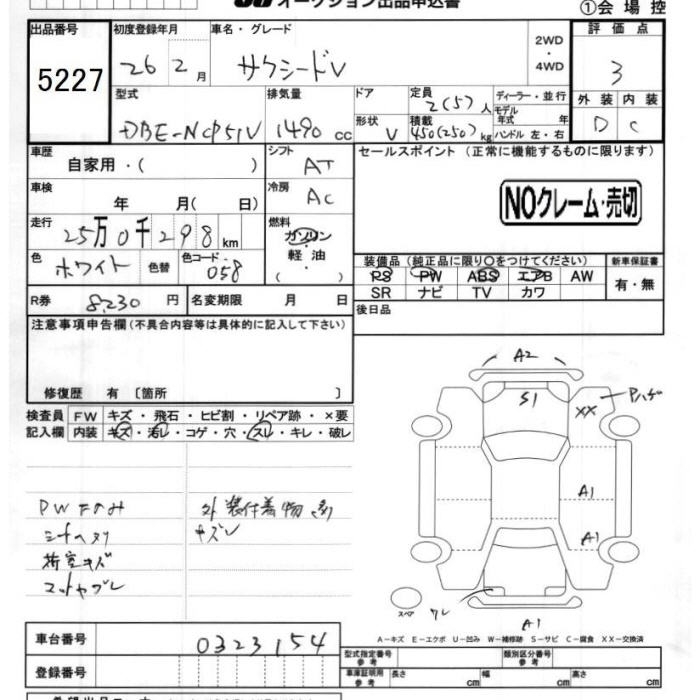 オークション出品申込書
①会場控
出品番号 初度登録年月 車名・グレード 評価点
5227 26 2月 サクシードV 2WD・4WD 3
型式 排気量 ドア 定員 ディーラー・並行 外装 内装
DBE-NCP51V 1490cc 2(5)人 モデル年式 年 D C
形状 V 積載 450(250)kg ハンドル 左・右
車歴 シフト セールスポイント(正常に機能するものに限ります)
自家用・( ) AT
車検 冷房
年 月( 日) AC
NOクレーム・売切
走行 燃料
25万0千298km ガソリン・軽油( )
装備品(純正品に限り○をつけてください) 新車保証書
色 色替 色コード
ホワイト 058
PS PW ABS エアB AW 有・無
SR ナビ TV カワ
R券 8,230円 名変期限 月 日
後日品
注意事項申告欄(不具合内容等は具体的に記入して下さい)
修復歴 有〔箇所 〕
検査員 FW キズ・飛石・ヒビ割・リペア跡・×要
記入欄 内装 キズ・汚レ・コゲ・穴・スレ・キレ・破レ
A2
S1
XX Pハゲ
A1
A1
PWFのみ 外装付着物多
シートヘタリ キズレ
荷室キズ
マットヤブレ
スペア
ワレ
A1
A-キズ E-エクボ U-凹み W-補修跡 S-サビ C-腐食 XX-交換済
車台番号 0323154
型式指定番号 参考 類別区分番号 参考
登録番号
車庫証明用 参考 長さ cm 幅 cm 高さ cm